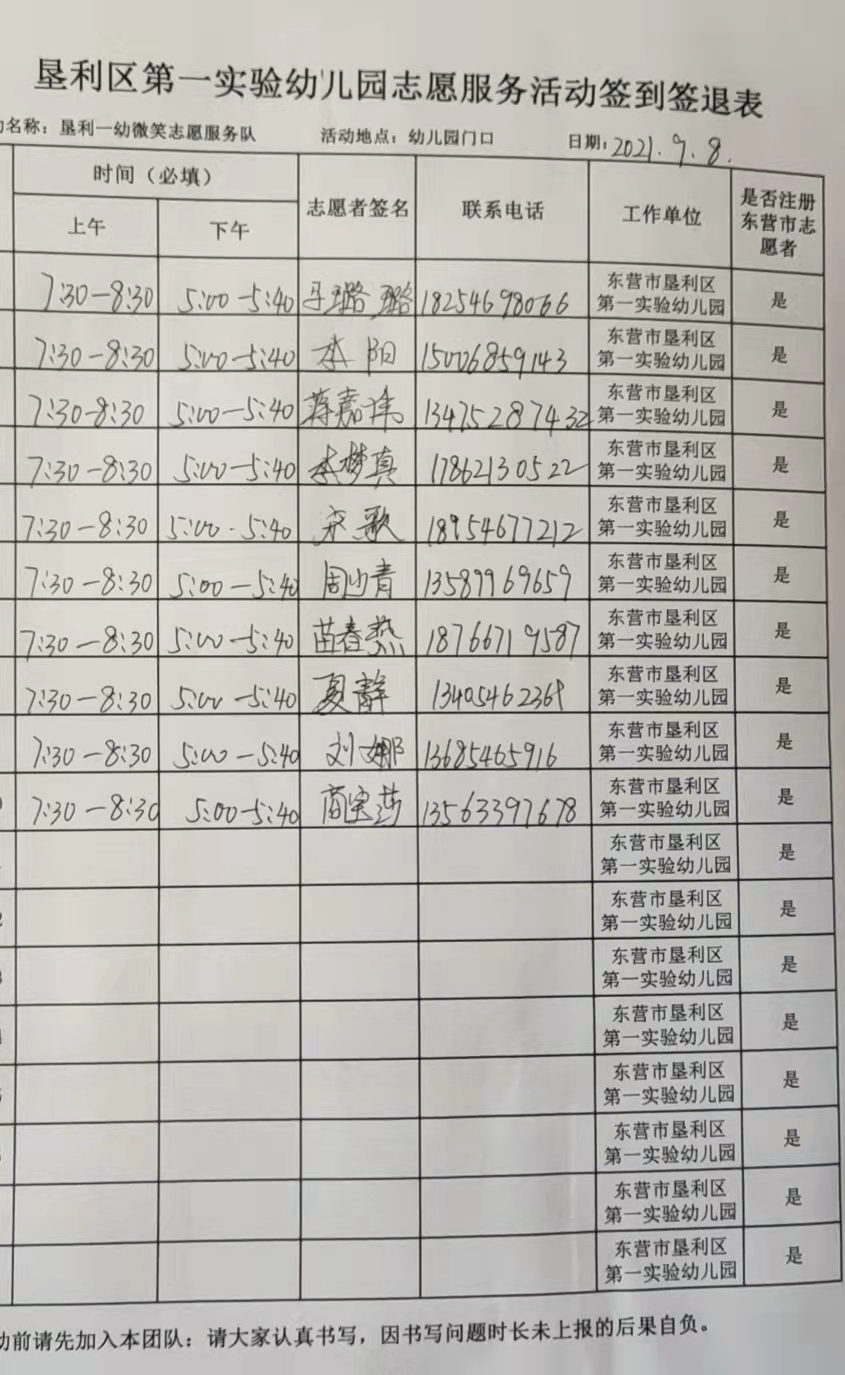 垦利区第一实验幼儿园志愿服务活动签到签退表
名称：垦利一幼微笑志愿服务队 活动地点：幼儿园门口 日期：2021.9.8.
时间（必填） 志愿者签名 联系电话 工作单位 是否注册东营市志愿者
上午 下午
7:30-8:30 5:00-5:40 马璐璐 18254698066 东营市垦利区第一实验幼儿园 是
7:30-8:30 5:00-5:40 李阳 15006859143 东营市垦利区第一实验幼儿园 是
7:30-8:30 5:00-5:40 蒋嘉 13475287432 东营市垦利区第一实验幼儿园 是
7:30-8:30 5:00-5:40 李梦真 17862130522 东营市垦利区第一实验幼儿园 是
7:30-8:30 5:00-5:40 宋歌 18954677212 东营市垦利区第一实验幼儿园 是
7:30-8:30 5:00-5:40 周山青 13589969659 东营市垦利区第一实验幼儿园 是
7:30-8:30 5:00-5:40 苗春燕 18766719587 东营市垦利区第一实验幼儿园 是
7:30-8:30 5:00-5:40 夏静 13405462369 东营市垦利区第一实验幼儿园 是
7:30-8:30 5:00-5:40 刘娜 13685465916 东营市垦利区第一实验幼儿园 是
7:30-8:30 5:00-5:40 商宝莎 13563397678 东营市垦利区第一实验幼儿园 是
东营市垦利区第一实验幼儿园 是
东营市垦利区第一实验幼儿园 是
东营市垦利区第一实验幼儿园 是
东营市垦利区第一实验幼儿园 是
东营市垦利区第一实验幼儿园 是
东营市垦利区第一实验幼儿园 是
东营市垦利区第一实验幼儿园 是
东营市垦利区第一实验幼儿园 是
动前请先加入本团队：请大家认真书写，因书写问题时长未上报的后果自负。